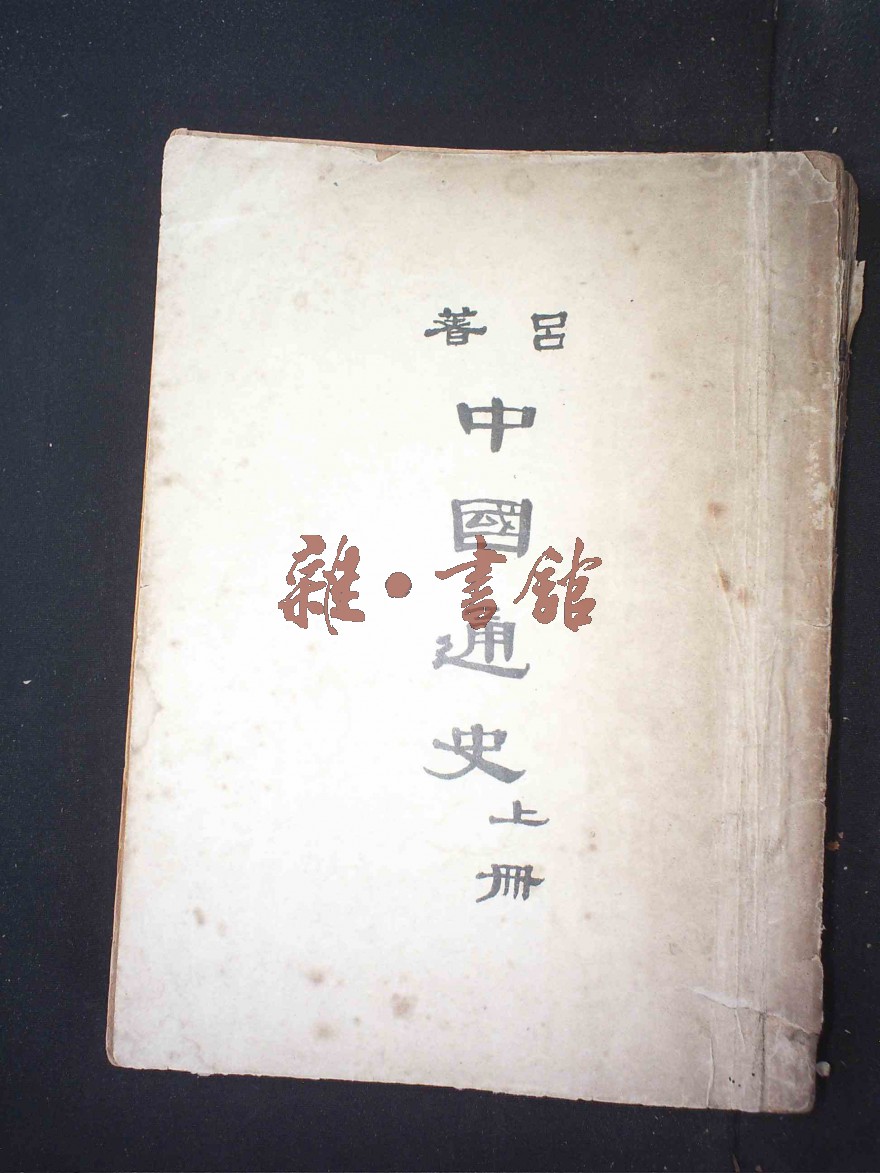 呂著
中國通史
上冊
雜·書館